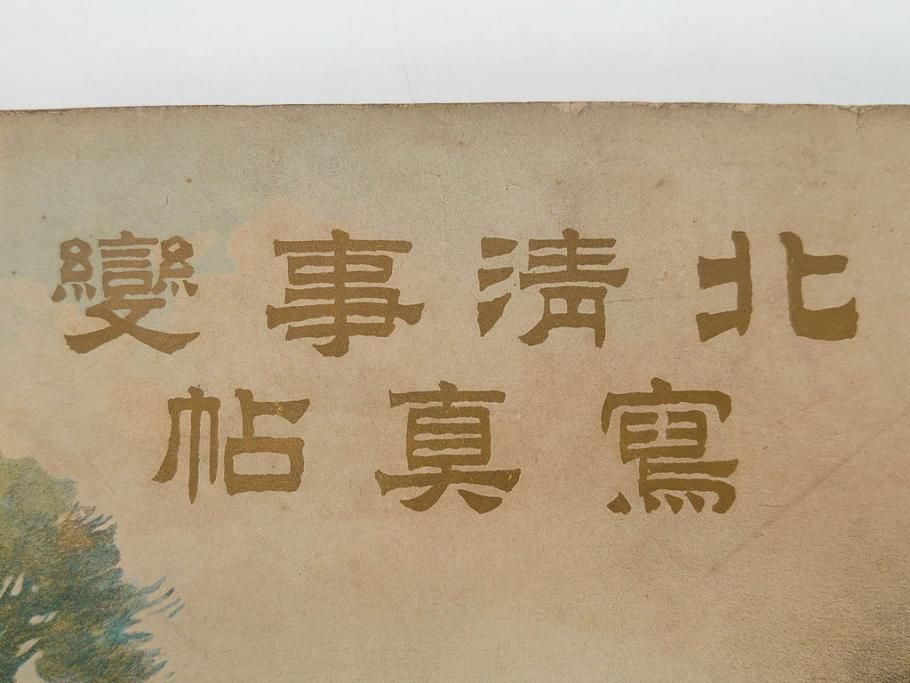 北清事變
寫真帖